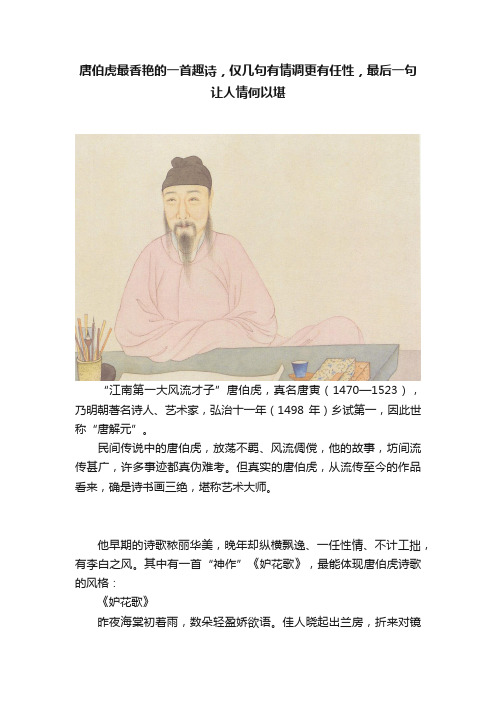 唐伯虎最香艳的一首趣诗，仅几句有情调更有任性，最后一句
让人情何以堪
“江南第一大风流才子”唐伯虎，真名唐寅（1470—1523），
乃明朝著名诗人、艺术家，弘治十一年（1498 年）乡试第一，因此世
称“唐解元”。
民间传说中的唐伯虎，放荡不羁、风流倜傥，他的故事，坊间流
传甚广，许多事迹都真伪难考。但真实的唐伯虎，从流传至今的作品
看来，确是诗书画三绝，堪称艺术大师。
他早期的诗歌秾丽华美，晚年却纵横飘逸、一任性情、不计工拙，
有李白之风。其中有一首“神作”《妒花歌》，最能体现唐伯虎诗歌
的风格：
《妒花歌》
昨夜海棠初着雨，数朵轻盈娇欲语。佳人晓起出兰房，折来对镜